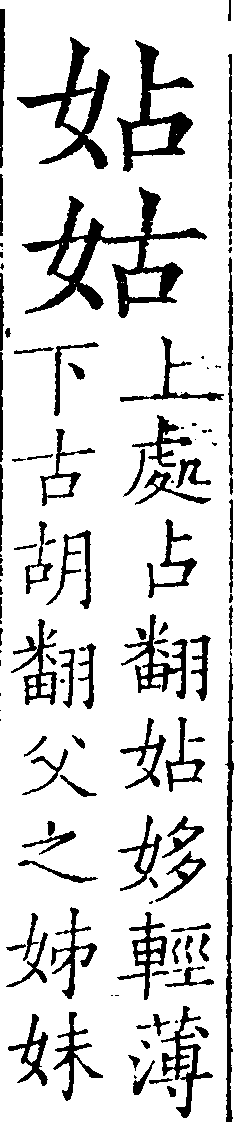 姑姑
上處占翻姑姼輕薄
下古胡翻父之姊妹